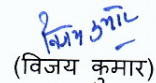 विजय कुमार
(विजय कुमार)